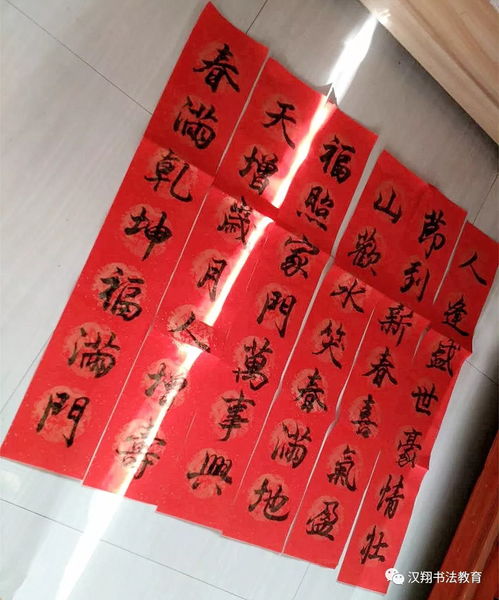 人逢盛世豪情壯
節到新春喜氣盈
山歡水笑春滿地
福照家門萬事興
天增歲月人增壽
春滿乾坤福滿門
汉翔书法教育